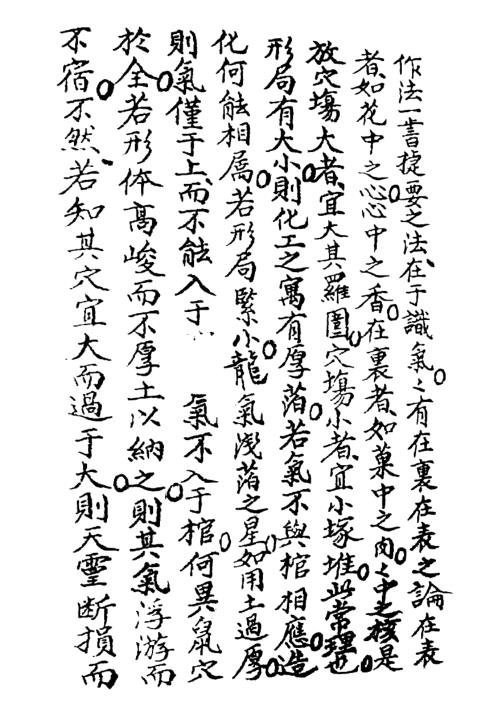 作法一書捷要之法、在于識氣。々有在裏在表之論在表
者、如花中之心。心中之香。在裏者、如菓中之肉。々中之核。是
放穴塲大者、宜大其羅圍。穴塲小者、宜小塚堆。此常理也。
形局有大小。則化工之寓有厚薄。若氣不與棺相應。造
化何能相屬。若形局緊小。龍氣淺薄之星。如用土過厚。
則氣僅于上、而不能入于 氣不入于棺。何異鼠穴
於全。若形体高峻而不厚土以納之。則其氣浮游而
不宿。不然、若知其穴宜大而過于大則天靈断損而